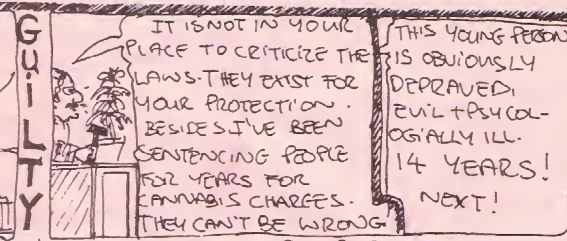 GUILTY
IT IS NOT IN YOUR
PLACE TO CRITICIZE THE
LAWS. THEY EXIST FOR
YOUR PROTECTION.
BESIDES I'VE BEEN
SENTENCING PEOPLE
FOR YEARS FOR
CANNABIS CHARGES.
THEY CAN'T BE WRONG
THIS YOUNG PERSON
IS OBVIOUSLY
DEPRAVED,
EVIL + PSYCOL-
OGIALLY ILL.
14 YEARS!
NEXT!